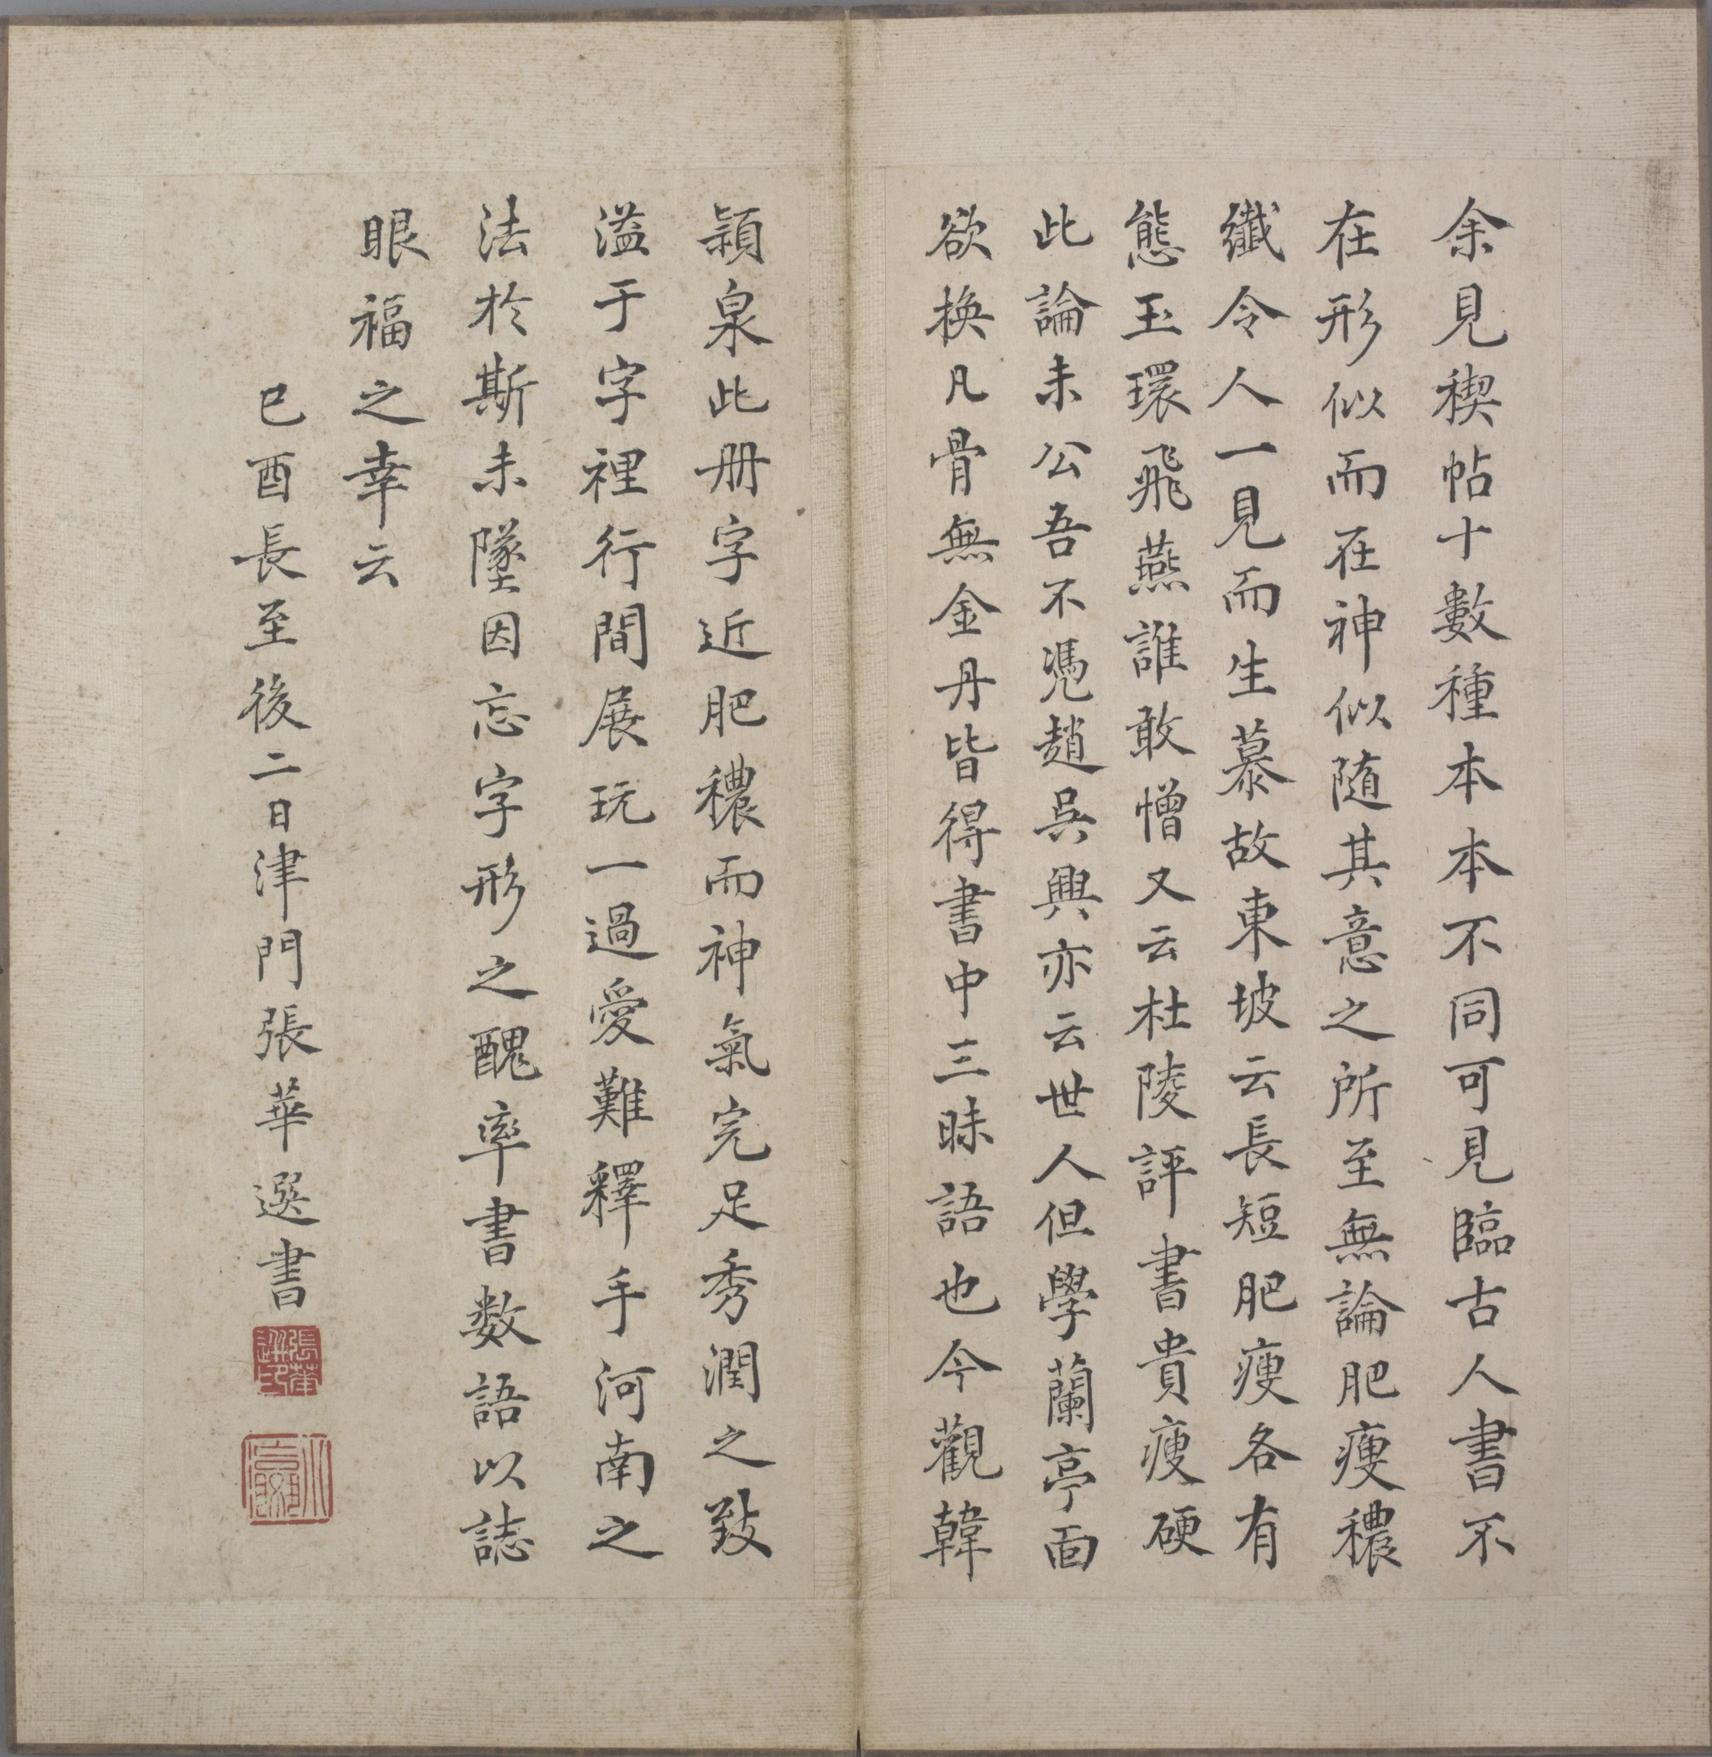 余見稧帖十數種本本不同可見臨古人書不
在形似而在神似随其意之所至無論肥瘦穠
纖令人一見而生慕故東坡云長短肥瘦各有
態玉環飛燕誰敢憎又云杜陵評書貴瘦硬
此論未公吾不憑趙吳興亦云世人但學蘭亭面
欲換凡骨無金丹皆得書中三昧語也今觀韓
潁泉此册字近肥穠而神氣完足秀潤之致
溢于字裡行間展玩一過愛難釋手河南之
法於斯未墜因忘字形之醜率書数語以誌
眼福之幸云
己酉長至後二日津門張華選書
張華選印